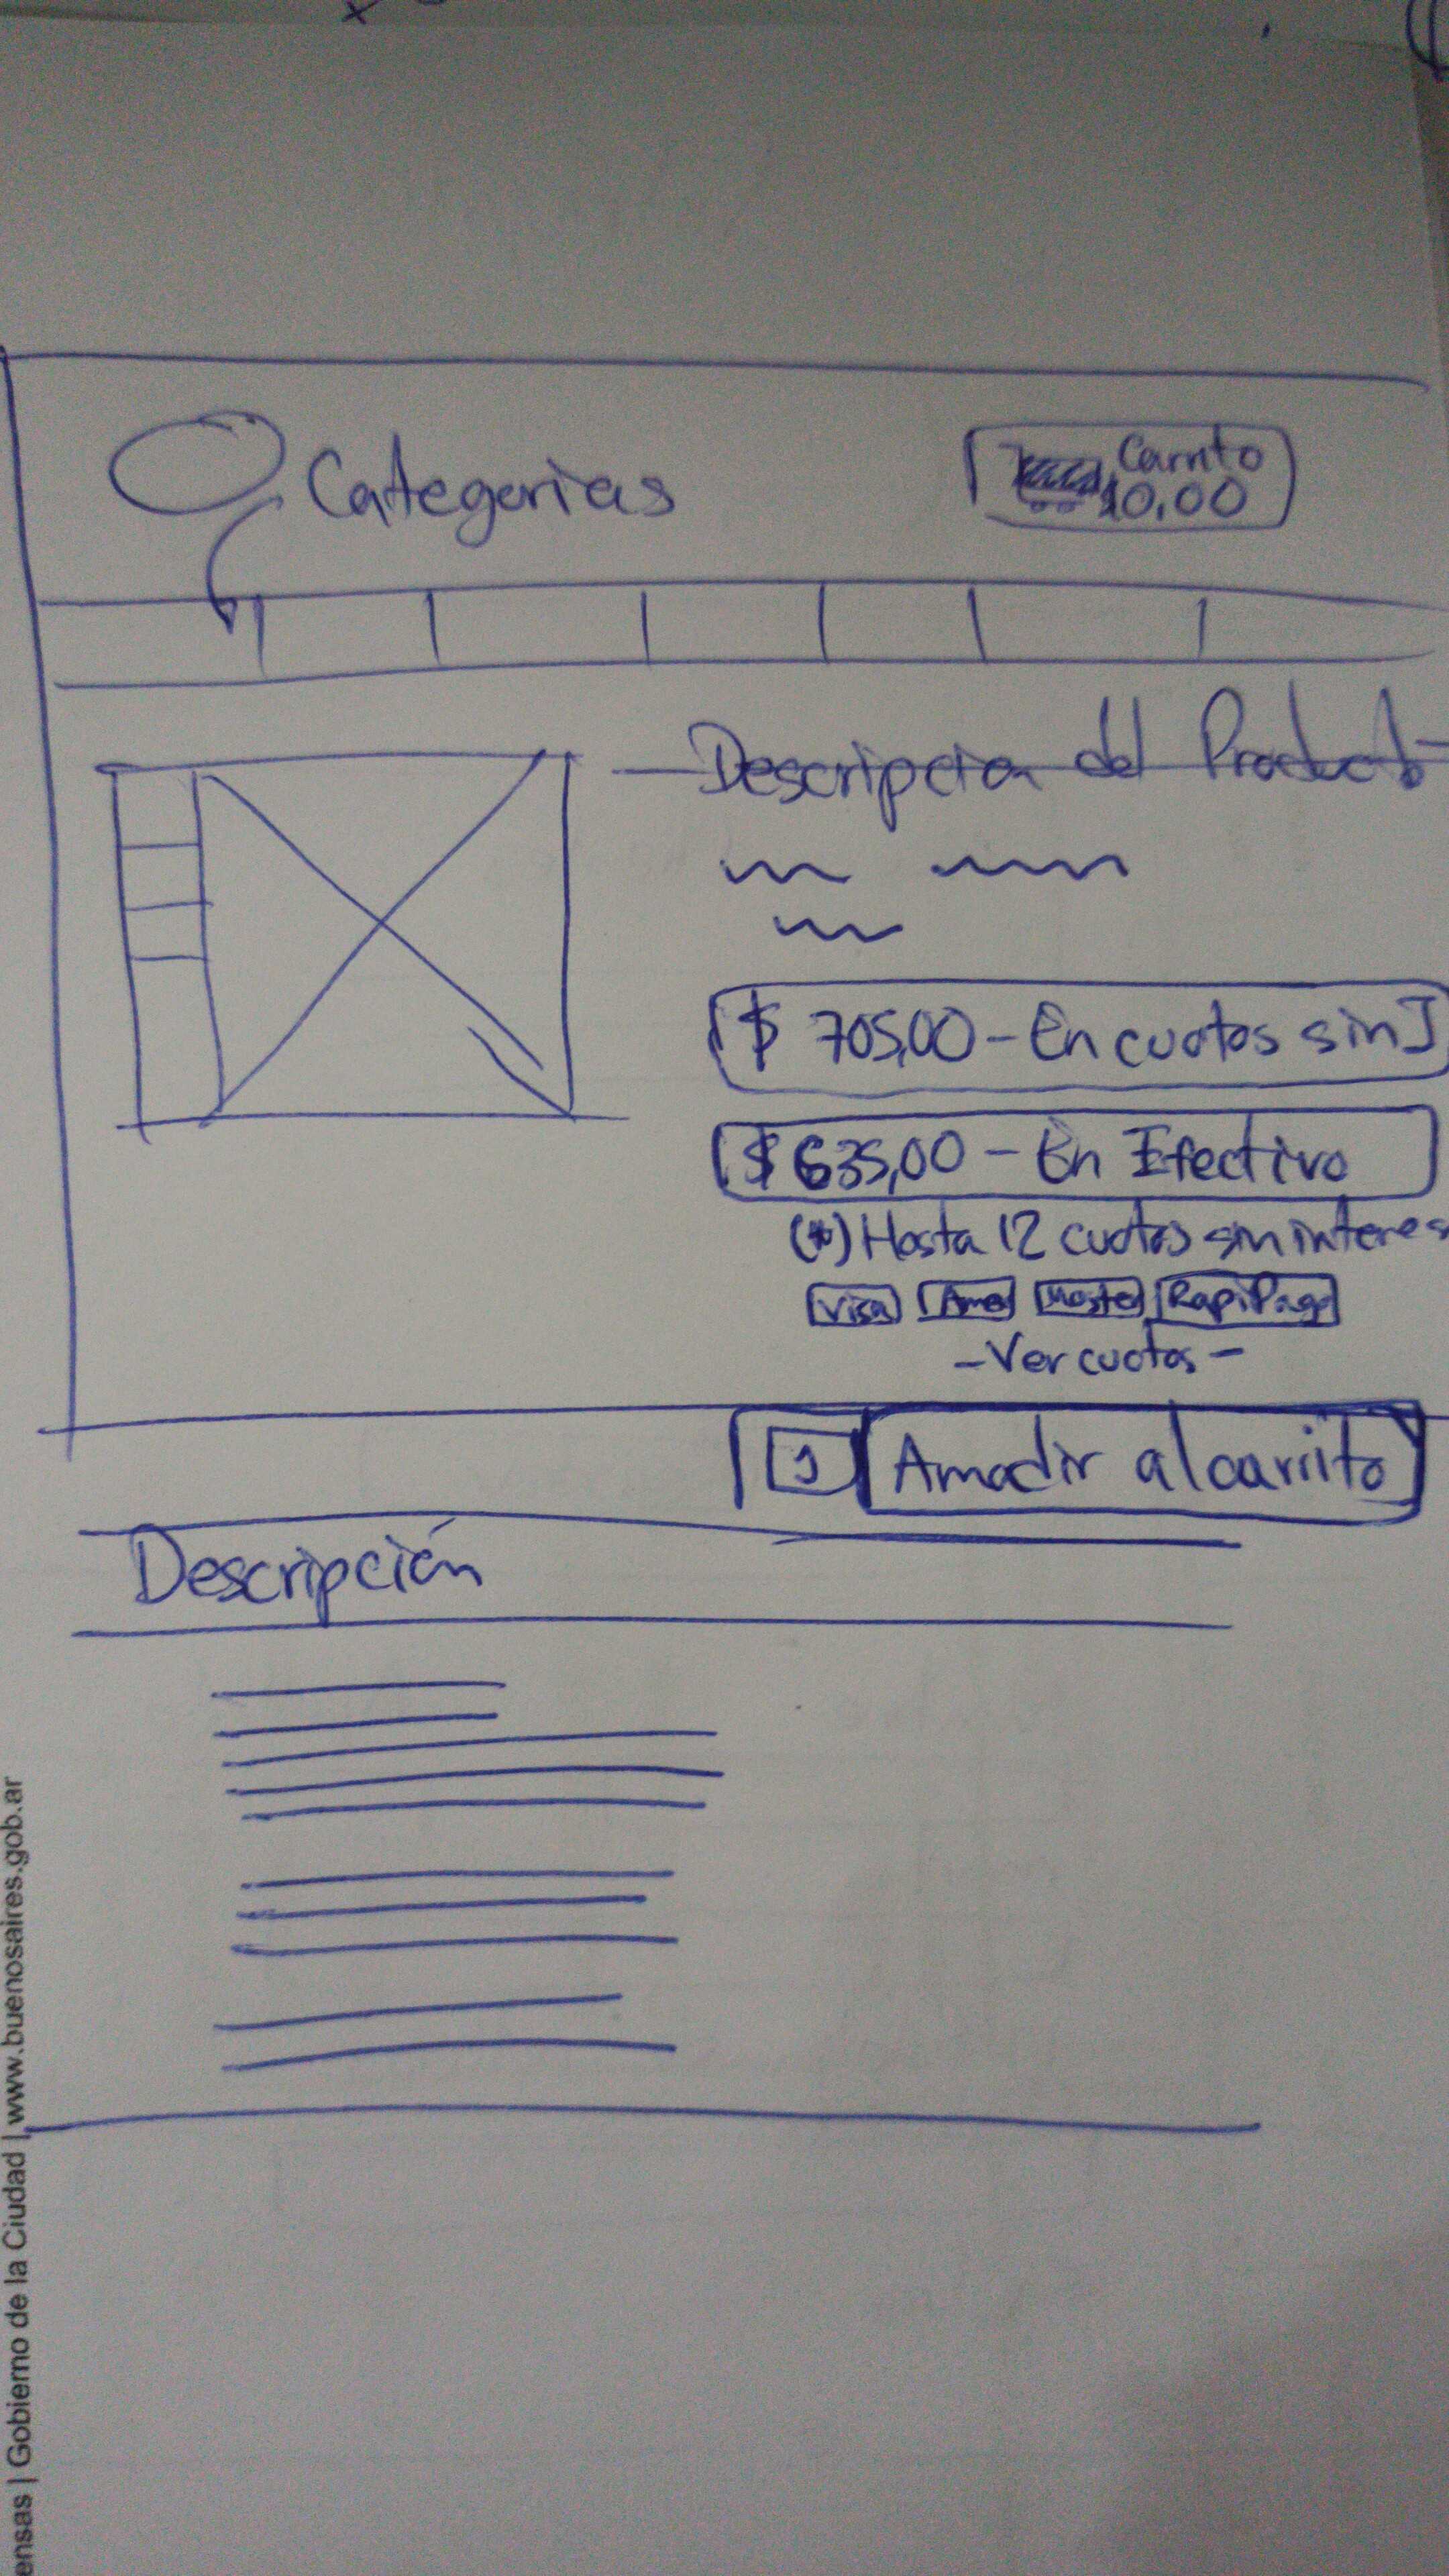 Categorias
Carrito
$0,00
Descripcion del Producto
$ 705,00 - En cuotas sin I
$ 635,00 - En Efectivo
(*) Hasta 12 cuotas sin interes
Visa Ame Maste RapiPago
- Ver cuotas -
1 Amadir al carrito
Descripción
ensas | Gobierno de la Ciudad | www.buenosaires.gob.ar